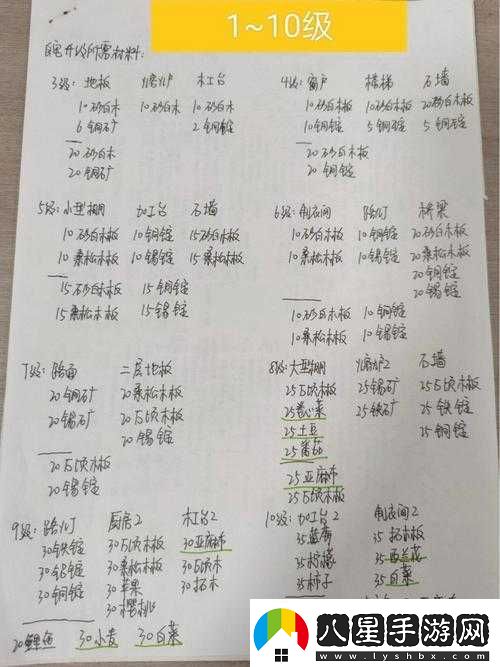 1~10级
自宅升级所需材料:
3级: 地板 熔炉 木工台
10砂白木 10砂白木 10砂白木
6铜矿 2铜锭
20砂白木
20铜矿
4级: 窗户 楼梯 石墙
10砂白木板 10砂白木板 20砂白木板
10铜锭 5铜锭 5铜锭
20砂白木板
20铜锭
5级: 小型棚 加工台 石墙
10砂白木板 10铜锭 15砂白木板
10桑松木板 10锡锭 15桑松木板
15砂白木板 15铜锭
15桑松木板 15锡锭
6级: 制衣间 路灯 桥梁
10砂白木板 10铜锭 20砂白木板
10桑松木板 10锡锭 20桑松木板
20铜锭
20锡锭
10砂白木板 10铜锭
10桑松木板 10锡锭
7级: 路面 二层地板
20铜矿 20桑松木板
20锡矿 20瓦坎木板
20锡锭
20瓦坎木板
20锡锭
8级: 大型棚 熔炉2 石墙
25瓦坎木板 25锡矿 25瓦坎木板
25卷心菜 25铁矿 25铁锭
25土豆 25铜锭
25番茄
25亚麻布
25瓦坎木板
9级: 路灯 厨房2 木工台2
30铁锭 30瓦坎木板 30亚麻布
30铝锭 30桑松木板 30瓦坎木
30铜锭 30苹果 30拓木
30樱桃
20鲤鱼 30小麦 30白菜
10级: 加工台2 制衣间2
35蓝莓 35拓木板
35柠檬 35西兰花
35柿子 35白菜
八星手游网
www.lyshbx.com